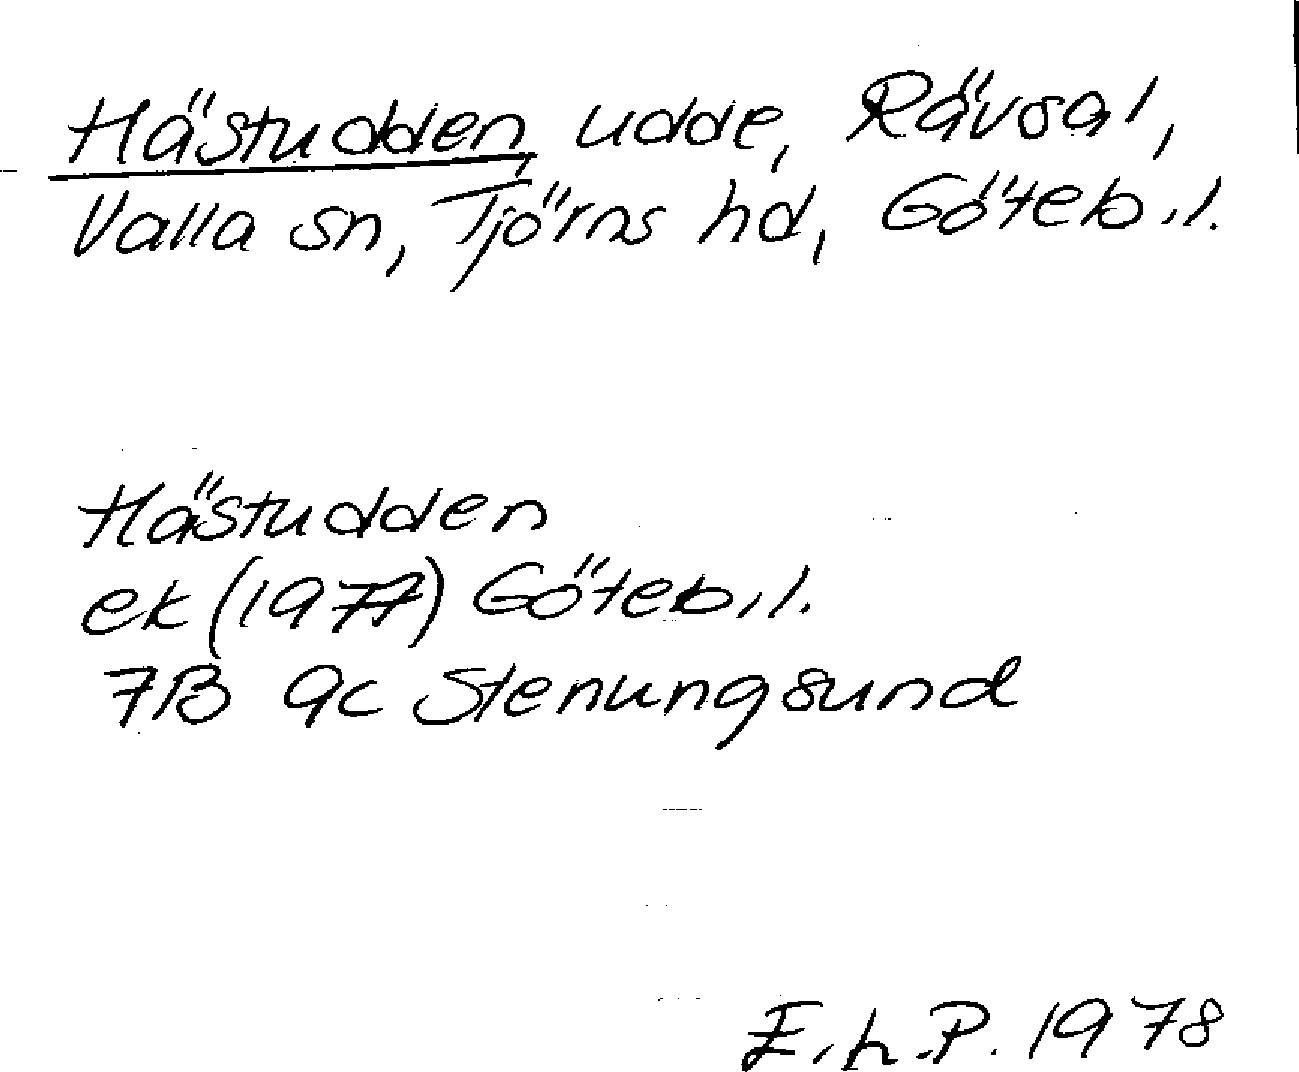 Hästudden, udde, Rävsal,
Valla sn, Tjörns hd, Göteb.l.
Hästudden
ek (1977) Göteb.l.
7B 9c Stenungsund
E.h.P. 1978